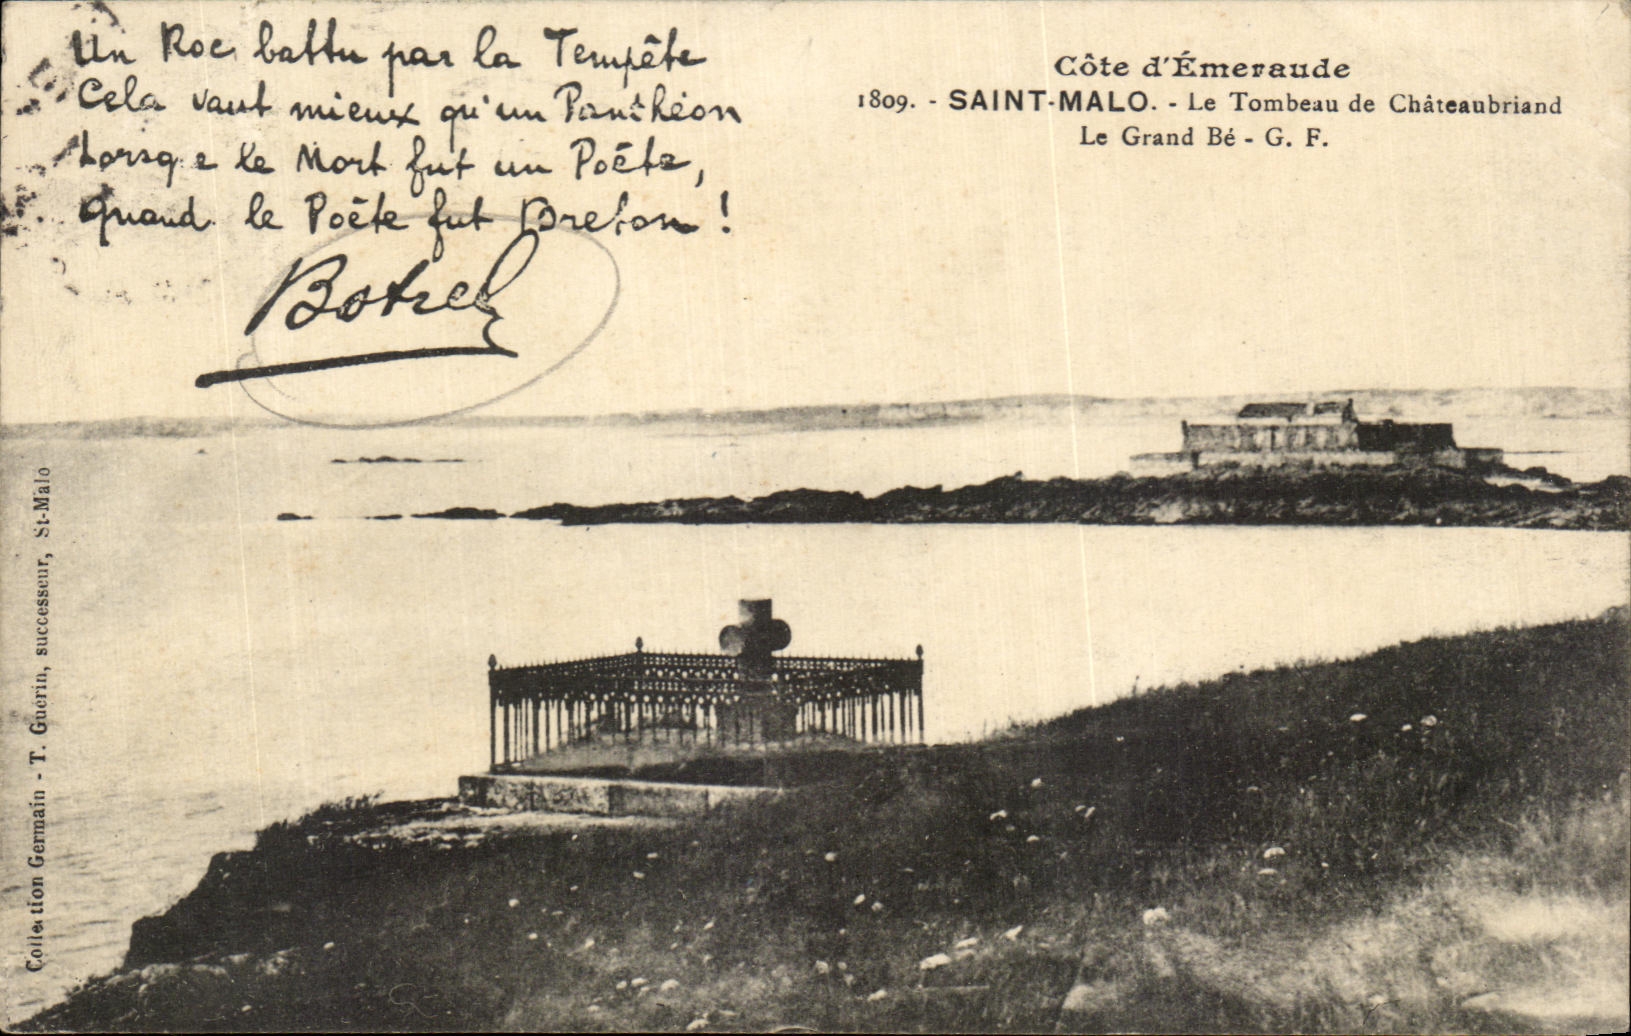 Un Roc battu par la Tempête
Cela vaut mieux qu'un Panthéon
Lorsque le Mort fut un Poëte,
Quand le Poëte fut Breton !
Botrel
Côte d'Émeraude
1809. - SAINT-MALO. - Le Tombeau de Châteaubriand
Le Grand Bé - G. F.
Collection Germain - T. Guérin, successeur, St-Malo